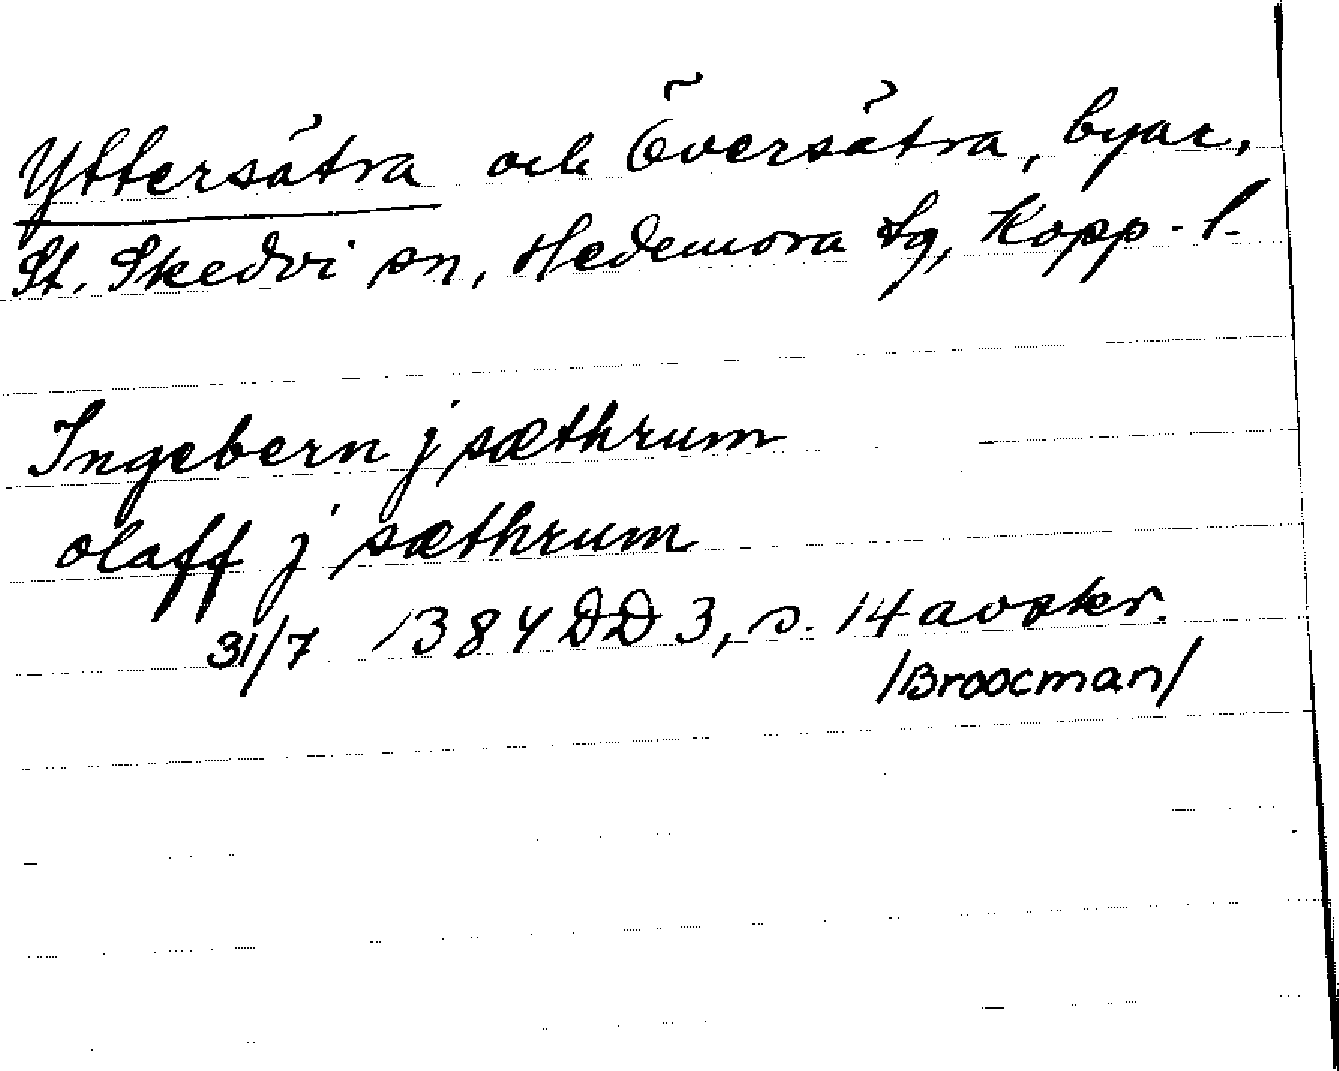 Yttersätra och Översätra, byar,
St. Skedvi sn, Hedemora tg, Kopp. l.
Ingebern j sæthrum
olaff j sæthrum
31/7 1384 DD 3, s. 14 avskr.
/Broocman/